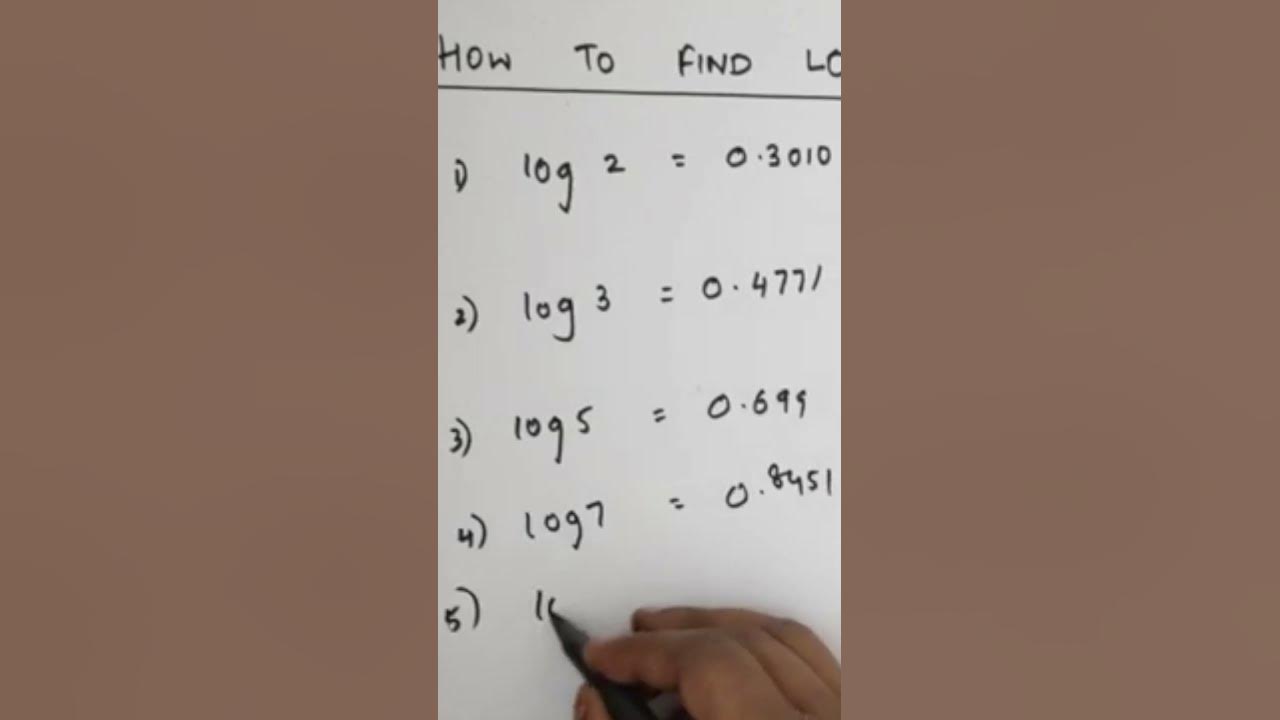 HOW TO FIND LO
1) log 2 = 0.3010
2) log 3 = 0.4771
3) log 5 = 0.699
4) log 7 = 0.8451
5) lo